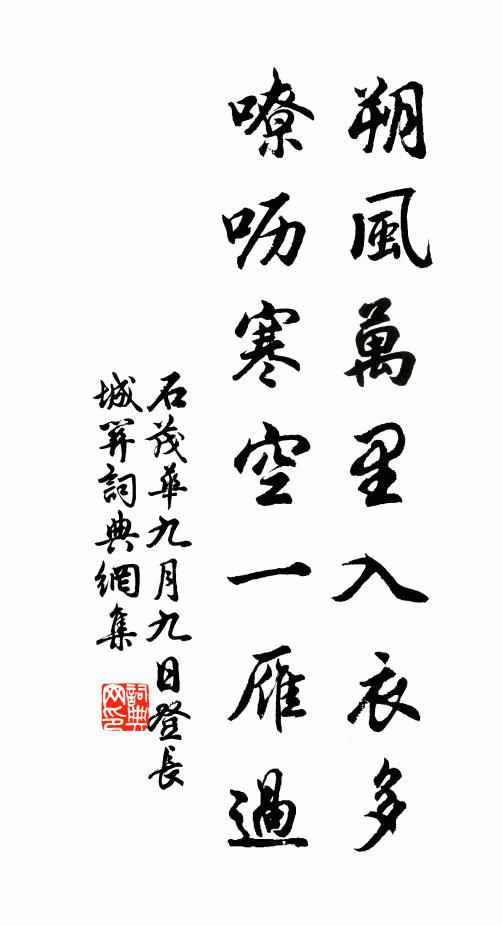 朔風萬里入衣多
嘹呖寒空一雁過
石茂華九月九日登長
城関詞典網集
詞典
网印